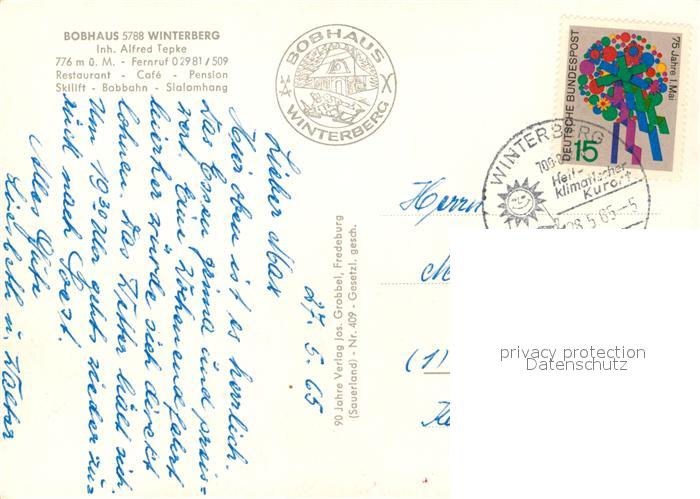 BOBHAUS 5788 WINTERBERG
Inh. Alfred Tepke
776 m ü. M. - Fernruf 0 29 81 / 509
Restaurant - Café - Pension
Skilift - Bobbahn - Slalomhang
BOBHAUS
WINTERBERG
75 Jahre 1. Mai
DEUTSCHE BUNDESPOST
15
WINTERBERG
Heil-
klimatischer
Kurort
28.5.65-5
27.5.65
Lieber Max
Hier oben ist es herrlich.
Das Essen prima und preis-
wert. Eine Wochenendfahrt
hierher würde sich direkt
lohnen. Das Wetter hält sich
Um 19.30 Uhr gehts wieder zu-
rück nach Soest.
Alles Gute
Liesbeth u. Walter
90 Jahre Verlag Jos. Grobbel, Fredeburg
(Sauerland) - Nr. 409 - Gesetzl. gesch.
Herrn
M
(1)
privacy protection
Datenschutz